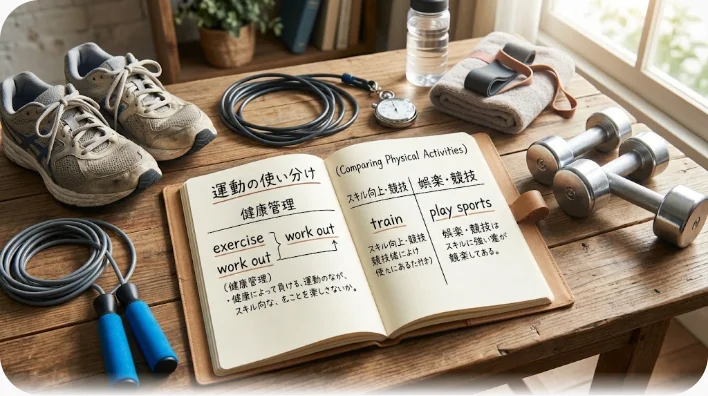 運動の使い分け
健康管理
exercise
work out
work out
(健康管理)
・健康によって負ける、運動のなが、
スキル向な、むことを楽しさないか。
(Comparing Physical Activities)
スキル向上・競技
娯楽・競技
train
play sports
スキル向上・競技
娯楽・競技は
スキルに強い
観楽してある。